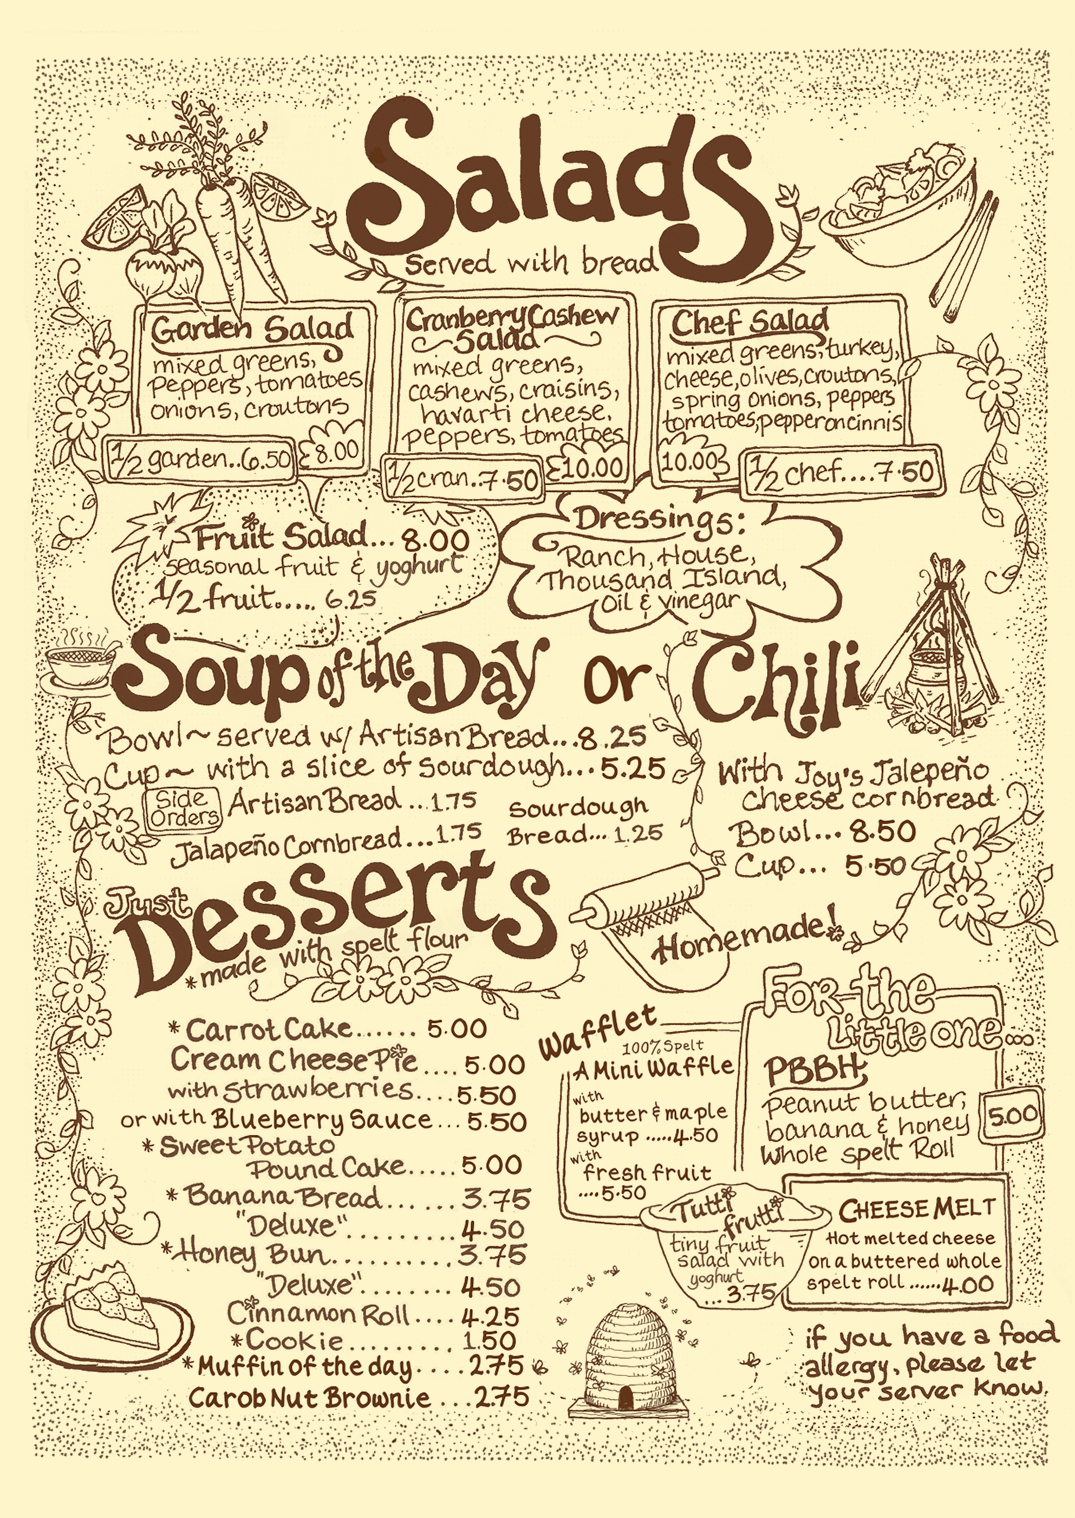 Salads
served with bread
Garden Salad
mixed greens,
peppers, tomatoes
onions, croutons
1/2 garden..6.50
8.00
Cranberry Cashew
~Salad~
mixed greens,
cashews, craisins,
havarti cheese,
peppers, tomatoes
1/2 cran.7.50
10.00
Chef Salad
mixed greens, turkey,
cheese, olives, croutons,
spring onions, peppers
tomatoes, pepperoncinnis
10.00
1/2 chef....7.50
Fruit Salad...8.00
seasonal fruit & yoghurt
1/2 fruit..... 6.25
Dressings:
Ranch, House,
Thousand Island,
Oil & Vinegar
Soup of the Day or Chili
Bowl~ served w/ Artisan Bread...8.25
Cup~ with a slice of sourdough...5.25
Side
Orders
Artisan Bread ..1.75
Jalapeño Cornbread...1.75
Sourdough
Bread... 1.25
With Joy's Jalepeño
cheese cornbread
Bowl... 8.50
Cup... 5.50
Just
Desserts
*made with spelt flour
Homemade!
*Carrot Cake...... 5.00
Cream Cheese Pie.... 5.00
with strawberries....5.50
or with Blueberry Sauce... 5.50
*Sweet Potato
Pound Cake..... 5.00
*Banana Bread........ 3.75
"Deluxe"......... 4.50
*Honey Bun.......... 3.75
"Deluxe"........ 4.50
Cinnamon Roll.... 4.25
*Cookie......... 1.50
*Muffin of the day.... 2.75
Carob Nut Brownie ...2.75
Wafflet
100% Spelt
A Mini Waffle
with
butter & maple
syrup .....4.50
with
fresh fruit
....5.50
For the
Little one...
PBBH
peanut butter,
banana & honey
whole spelt Roll
5.00
Tutti
frutti
tiny fruit
salad with
yoghurt
...3.75
Cheese Melt
Hot melted cheese
on a buttered whole
spelt roll ......4.00
if you have a food
allergy, please let
your server know.